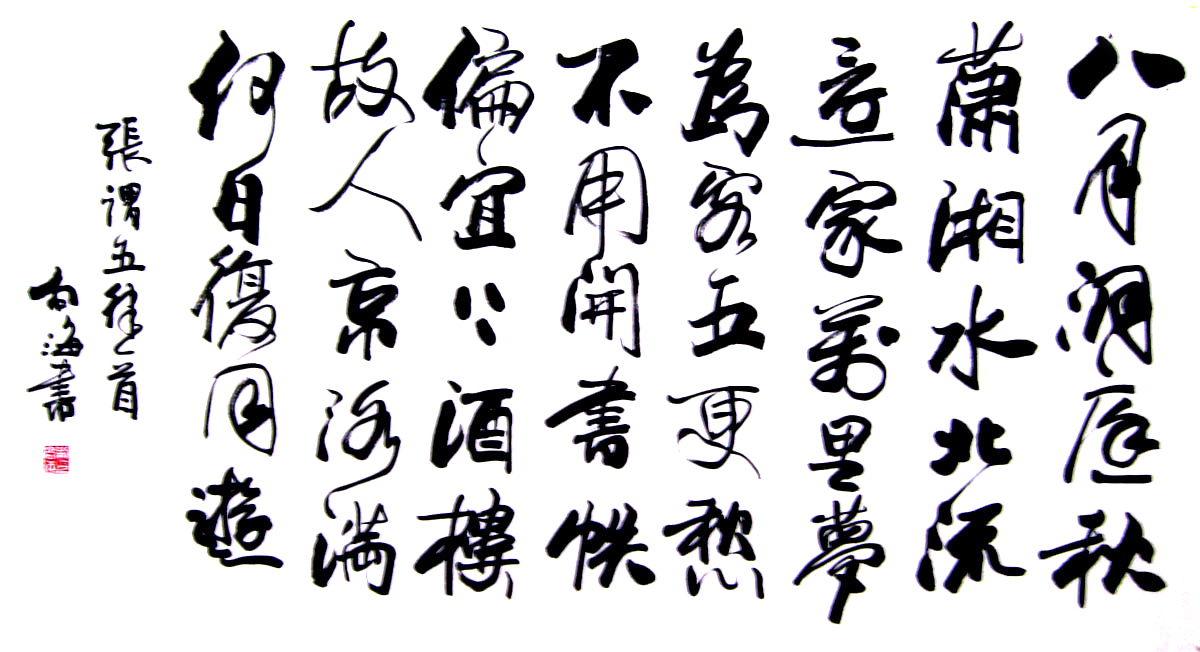 八月洞庭秋
蕭湘水北流
還家萬里夢
為客五更愁
不用開書帙
偏宜上酒樓
故人京洛滿
何日復同遊
張謂五律一首
向海書